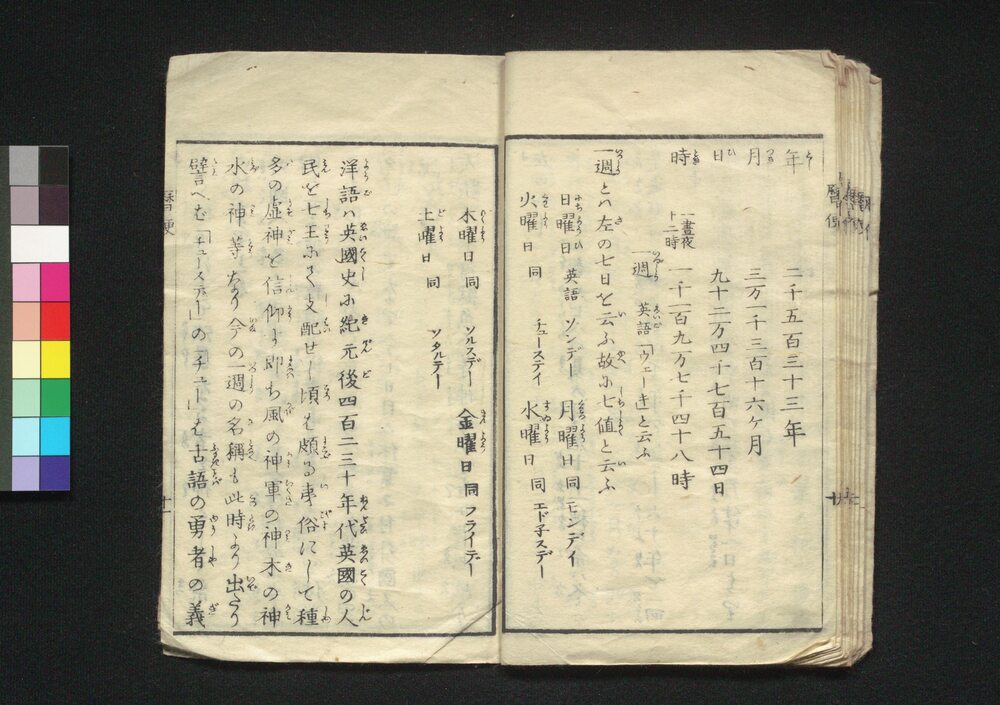 年 二千五百三十三年
月 三万一千三百十六ヶ月
日 九十二万四千七百五十四日
時 一昼夜十二時 一千一百九万七千四十八時
一週 英語「ウェーキ」と云ふ
一週とハ左の七日を云ふ故に七値と云ふ
日曜日 英語 ソンデー 月曜日 同 モンデイ
火曜日 同 チュースデイ 水曜日 同 エド子スデー
木曜日 同 ソルスデー 金曜日 同 フライデー
土曜日 同 ソタルデー
洋語ハ英國史に紀元後四百二三十年代英國の人
民を七王にて支配せし頃は頗る夷俗にして種
多の虚神を信仰す即ち風の神軍の神木の神
水の神等なり今の一週の名稱も此時より出たり
譬へば「チュースデー」の「チュー」は古語の勇者の義